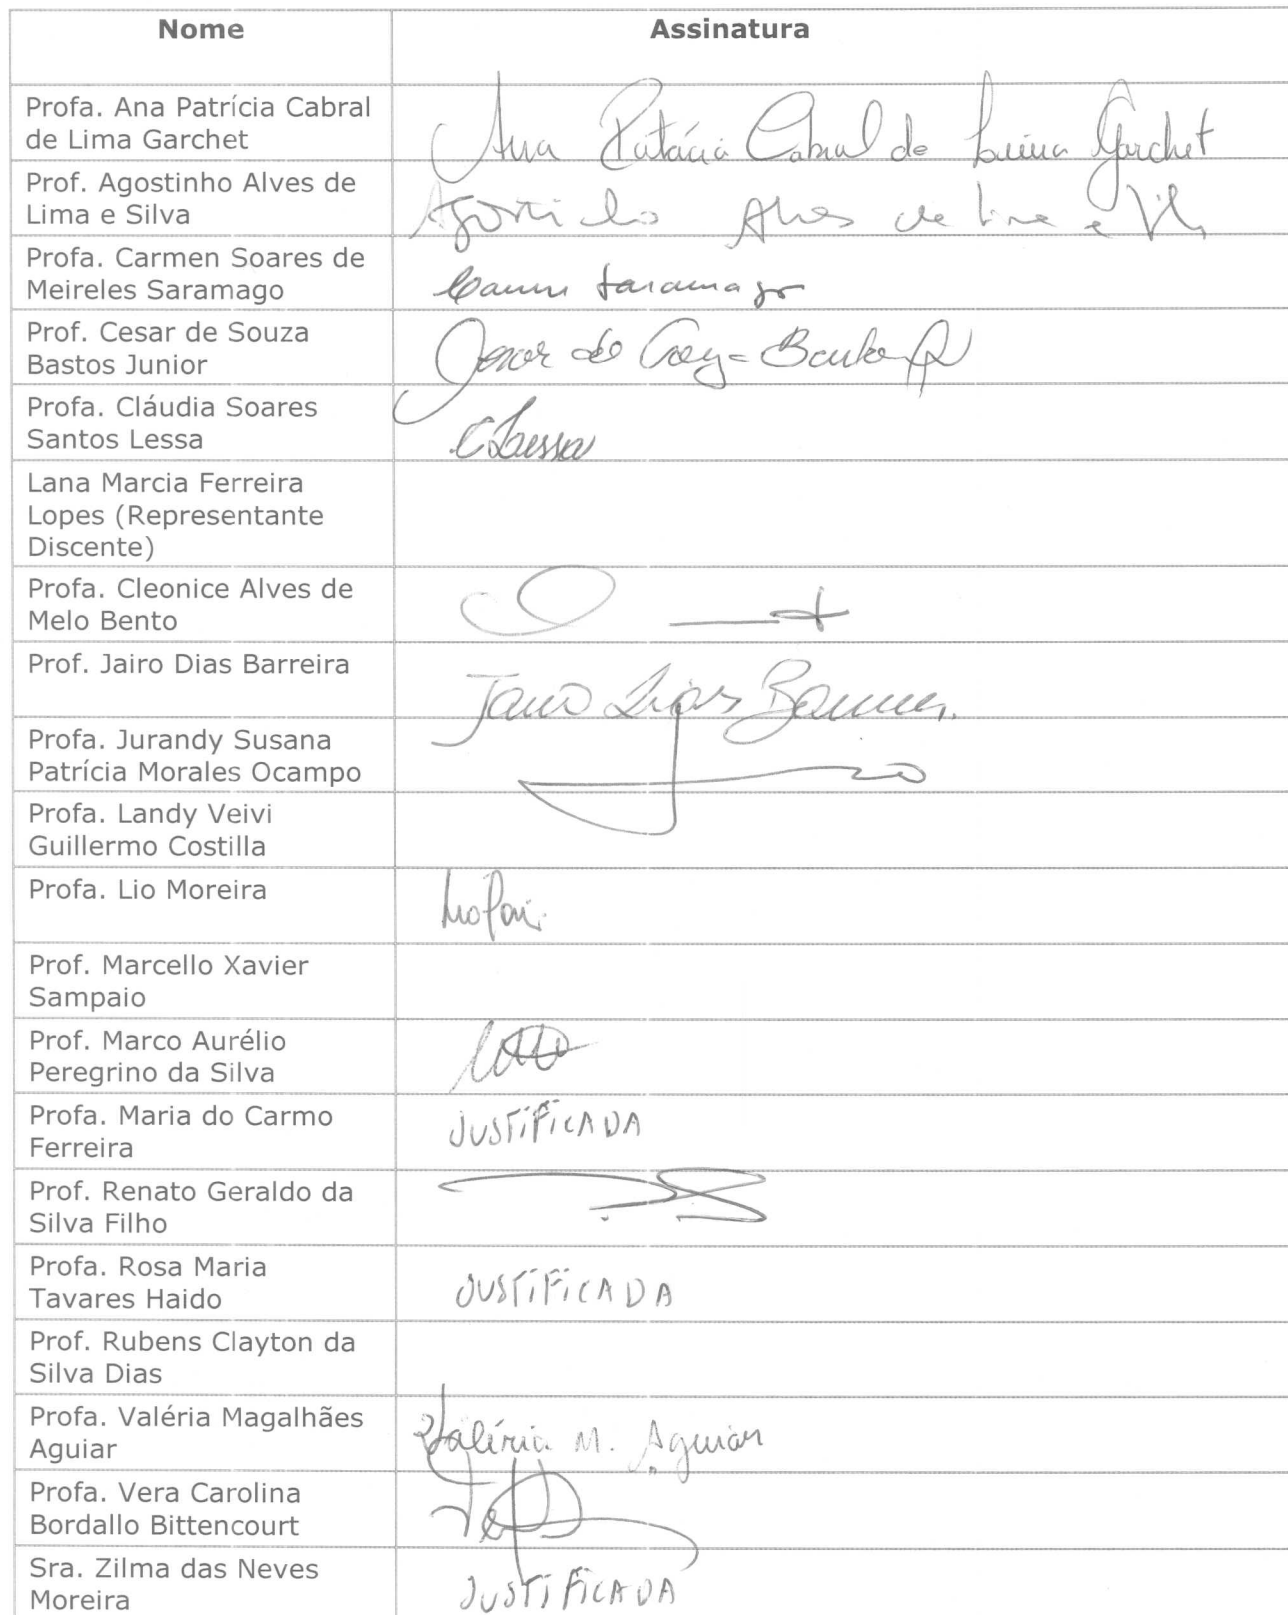 Nome Assinatura
Profa. Ana Patrícia Cabral
de Lima Garchet
Ana Patrícia Cabral de Lima Garchet
Prof. Agostinho Alves de
Lima e Silva
Agostinho Alves de Lima e Silva
Profa. Carmen Soares de
Meireles Saramago
Carmen Saramago
Prof. Cesar de Souza
Bastos Junior
Profa. Cláudia Soares
Santos Lessa
CLessa
Lana Marcia Ferreira
Lopes (Representante
Discente)
Profa. Cleonice Alves de
Melo Bento
Prof. Jairo Dias Barreira
Jairo Dias Barreira
Profa. Jurandy Susana
Patrícia Morales Ocampo
Profa. Landy Veivi
Guillermo Costilla
Profa. Lio Moreira
Prof. Marcello Xavier
Sampaio
Prof. Marco Aurélio
Peregrino da Silva
Profa. Maria do Carmo
Ferreira
JUSTIFICADA
Prof. Renato Geraldo da
Silva Filho
Profa. Rosa Maria
Tavares Haido
JUSTIFICADA
Prof. Rubens Clayton da
Silva Dias
Profa. Valéria Magalhães
Aguiar
Valéria M. Aguiar
Profa. Vera Carolina
Bordallo Bittencourt
Sra. Zilma das Neves
Moreira
JUSTIFICADA